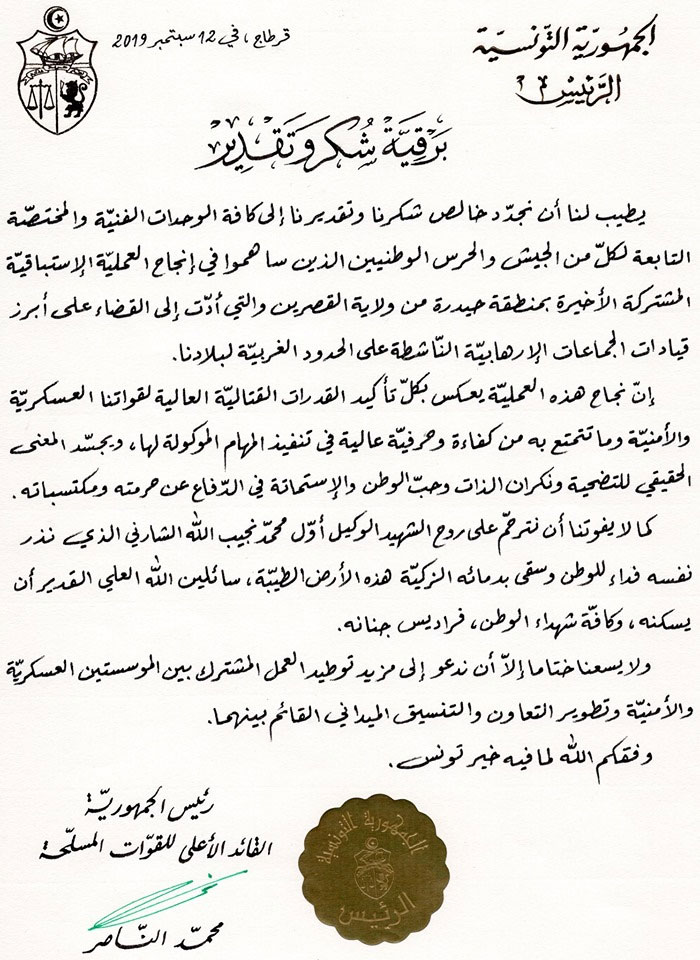 الجمهوريّة التّونسيّة
الرّئيس
قرطاج، في 12 سبتمبر 2019
برقيّة شكر و تقدير
يطيب لنا أن نجدّد خالص شكرنا وتقديرنا إلى كافة الوحدات الفنيّة والمختصّة
التابعة لكلّ من الجيش والحرس الوطنيين الذين ساهموا في إنجاح العمليّة الإستباقيّة
المشتركة الأخيرة بمنطقة حيدرة من ولاية القصرين والتي أدّت إلى القضاء على أبرز
قيادات الجماعات الإرهابيّة النّاشطة على الحدود الغربيّة لبلادنا.
إنّ نجاح هذه العمليّة يعكس بكلّ تأكيد القدرات القتاليّة العالية لقواتنا العسكريّة
والأمنيّة وما تتمتع به من كفاءة وحرفيّة عالية في تنفيذ المهام الموكولة لها، ويجسّد المعنى
الحقيقي للتضحية ونكران الذات وحبّ الوطن والإستماتة في الدّفاع عن حرمته ومكتسباته.
كما لا يفوتنا أن نترحّم على روح الشهيد الوكيل أوّل محمّد نجيب الله الشارني الذي نذر
نفسه فداء للوطن وسقى بدمائه الزكيّة هذه الأرض الطيّبة، سائلين الله العلي القدير أن
يسكنه، وكافّة شهداء الوطن، فراديس جنانه.
ولا يسعنا ختاما إلاّ أن ندعو إلى مزيد توطيد العمل المشترك بين الموسستين العسكريّة
والأمنيّة وتطوير التعاون والتنسيق الميداني القائم بينهما.
وفقكم الله لما فيه خير تونس.
رئيس الجمهوريّة
القائد الأعلى للقوّات المسلّحة
محمّد النّاصر
الجمهورية التونسية
الرئيس